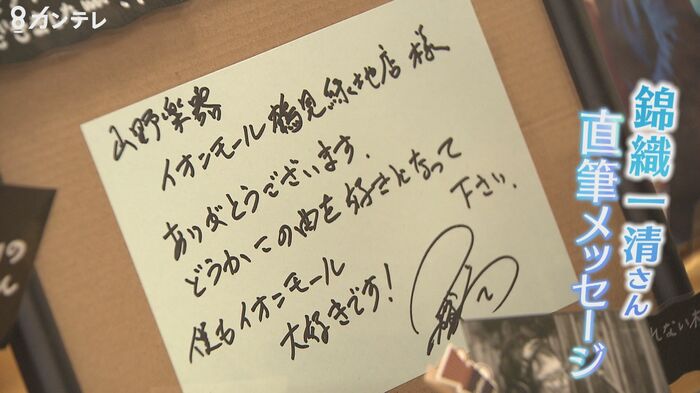 8カンテレ
山野楽器
イオンモール鶴見緑地店 様
ありがとうございます.
どうかこの曲を好きになって
下さい.
僕もイオンモール
大好きです!
錦織一清さん
直筆メッセージ